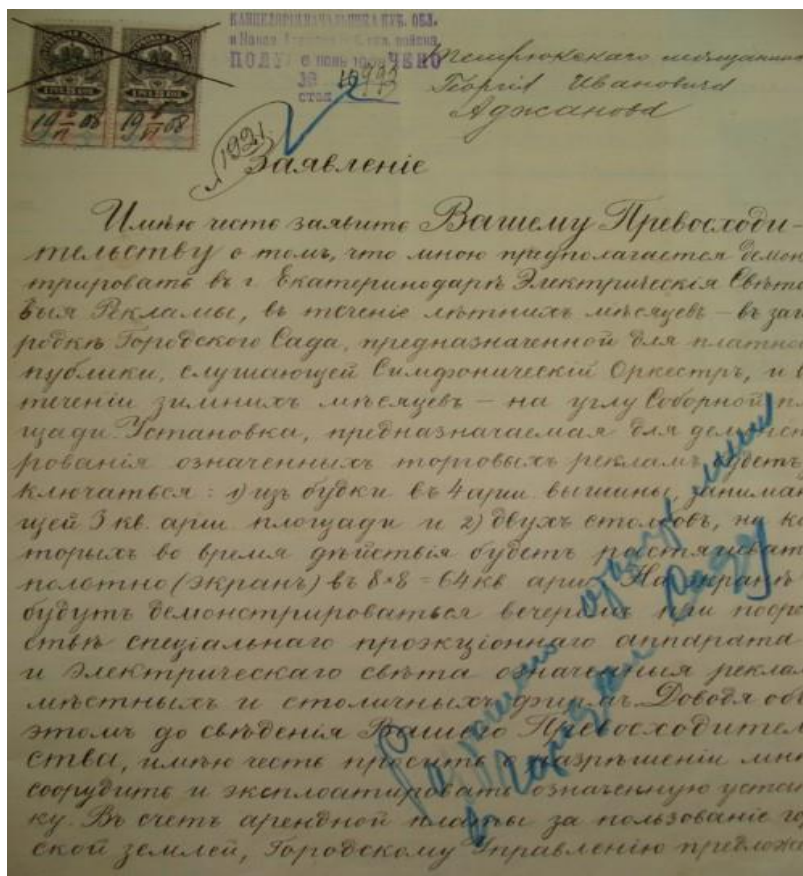 КАНЦЕЛЯРІЯ НАЧАЛЬНИКА КУБ. ОБЛ.
и Наказ. Атамана Куб. каз. войска.
ПОЛУЧЕНО
6 ІЮНЬ 1908
№ 10993
СТОЛ
19 VI 08 19 VI 08
Темрюкскаго мѣщанина
Георгія Ивановича
Аджанова
1921
Заявленіе
Имѣю честь заявить Вашему Превосходи-
тельству о томъ, что мною предполагается демон
трировать въ г. Екатеринодарѣ Электрическія Свѣто
выя Рекламы, въ теченіе лѣтнихъ мѣсяцевъ – въ заг
родкѣ Городского Сада, предназначенной для платно
публики, слушающей Симфоническій Оркестръ, и в
теченіи зимнихъ мѣсяцевъ – на углу Соборной пл
щади. Установка, предназначаемая для демонст
рованія означенныхъ торговыхъ рекламъ, будетъ
ключаться: 1) изъ будки въ 4 арш. вышины, занимаю
щей 3 кв. арш площади и 2) двухъ столбовъ, на ко
торыхъ во время дѣйствія будетъ растягиват
полотно (экранъ) въ 8×8 = 64 кв арш. На экранѣ
будутъ демонстрироваться вечеромъ при посре
ствѣ спеціальнаго проэкціоннаго аппарата
и электрическаго свѣта означенныя реклам
мѣстныхъ и столичныхъ фирмъ. Доводя объ
этомъ до свѣденія Вашего Превосходител
ства, имѣю честь просить о разрѣшеніи мнѣ
соорудить и эксплоатировать означенную устан
ку. Въ счетъ арендной платы за пользованіе го
ской землей, Городскому Управленію предложа
въ Городском Саду